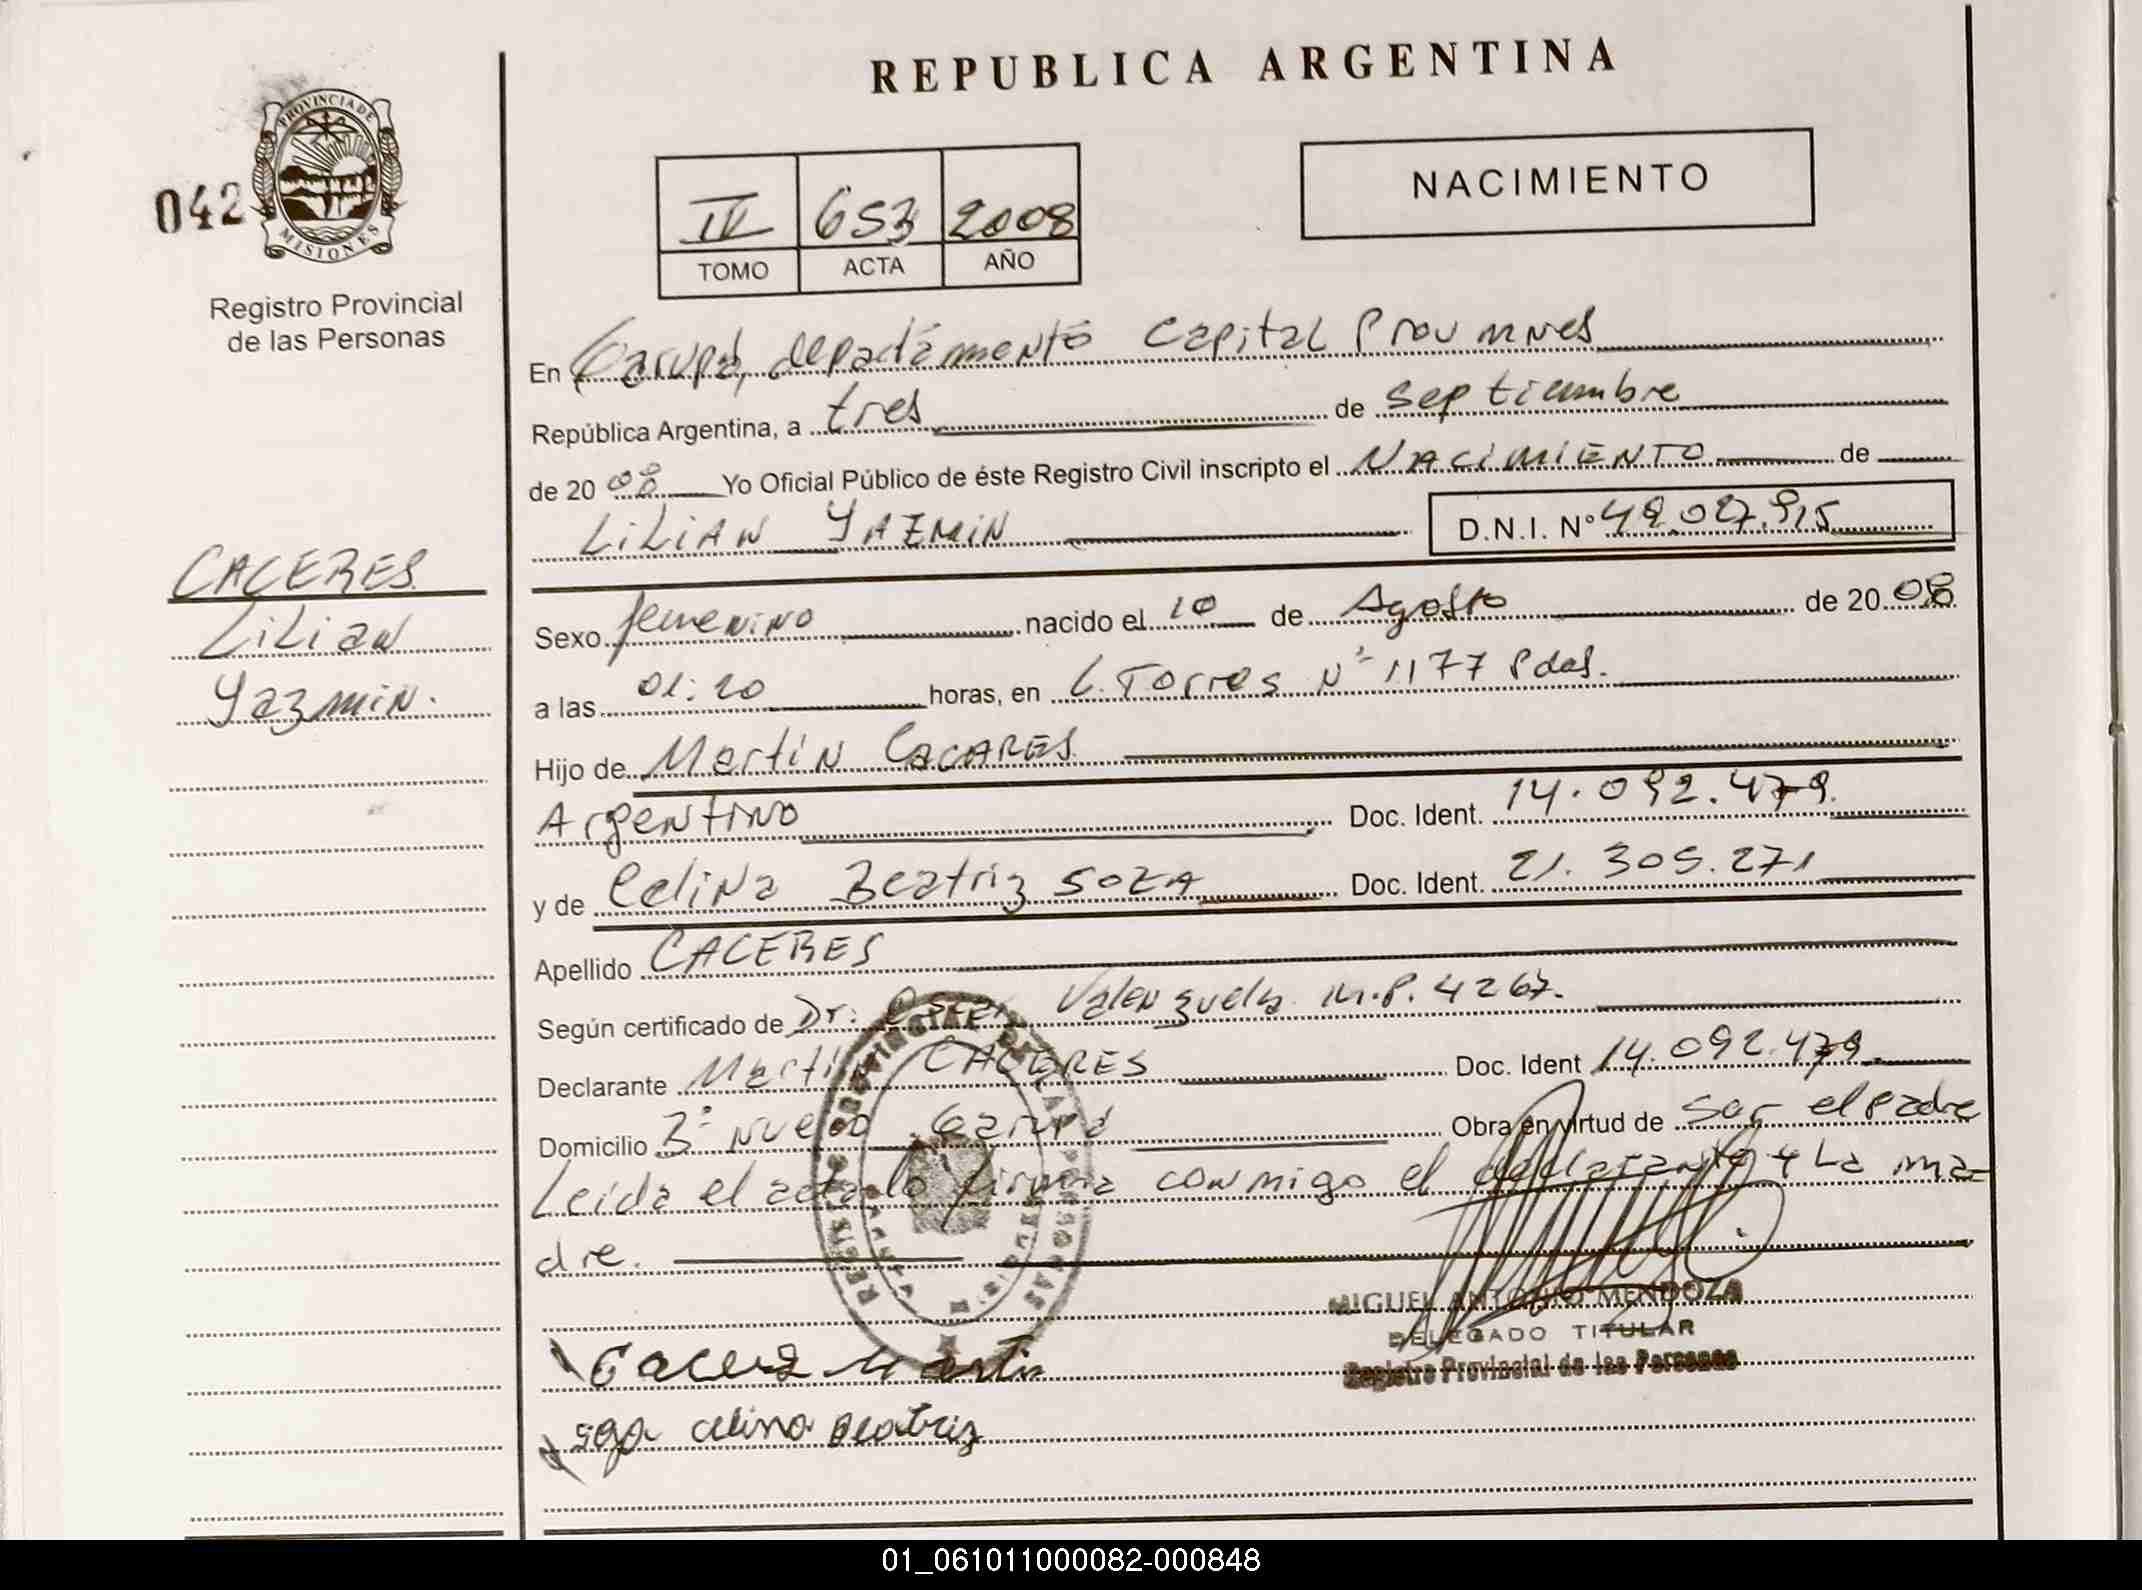 REPUBLICA ARGENTINA
PROVINCIA DE
MISIONES
042
Registro Provincial
de las Personas
IV 653 2008
TOMO ACTA AÑO
NACIMIENTO
En Garupá, departamento Capital Prov
República Argentina, a tres de septiembre
de 2008 Yo Oficial Público de éste Registro Civil inscripto el NACIMIENTO de
LILIAN YAZMIN D.N.I. Nº
CACERES
Lilian
Yazmin.
Sexo femenino nacido el 10 de Agosto de 2008
a las horas, en L. Torres Nº 1177 Pdas.
Hijo de Martin CACARES
Argentino Doc. Ident. 14.092.479.
y de Celina Beatriz SOZA Doc. Ident. 21.305.271
Apellido CACERES
Según certificado de Dr: Valenzuela M.P. 4267.
Declarante Martin CACERES Doc. Ident 14.092.479
Domicilio Bº nuevo Garupá Obra en virtud de ser el padre
Leida el acta lo firma conmigo el declarante y La ma-
dre.
MIGUEL ANTONIO MENDOZA
DELEGADO TITULAR
Registro Provincial de las Personas
Martin
celina Beatriz
01_061011000082-000848